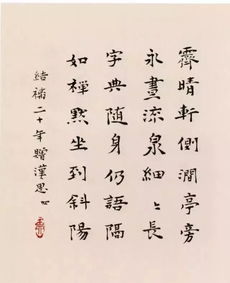 霽晴軒側澗亭旁
永晝流泉細〻長
字典隨身仍語隔
如禪黙坐到斜陽
結褵二十年贈漢思